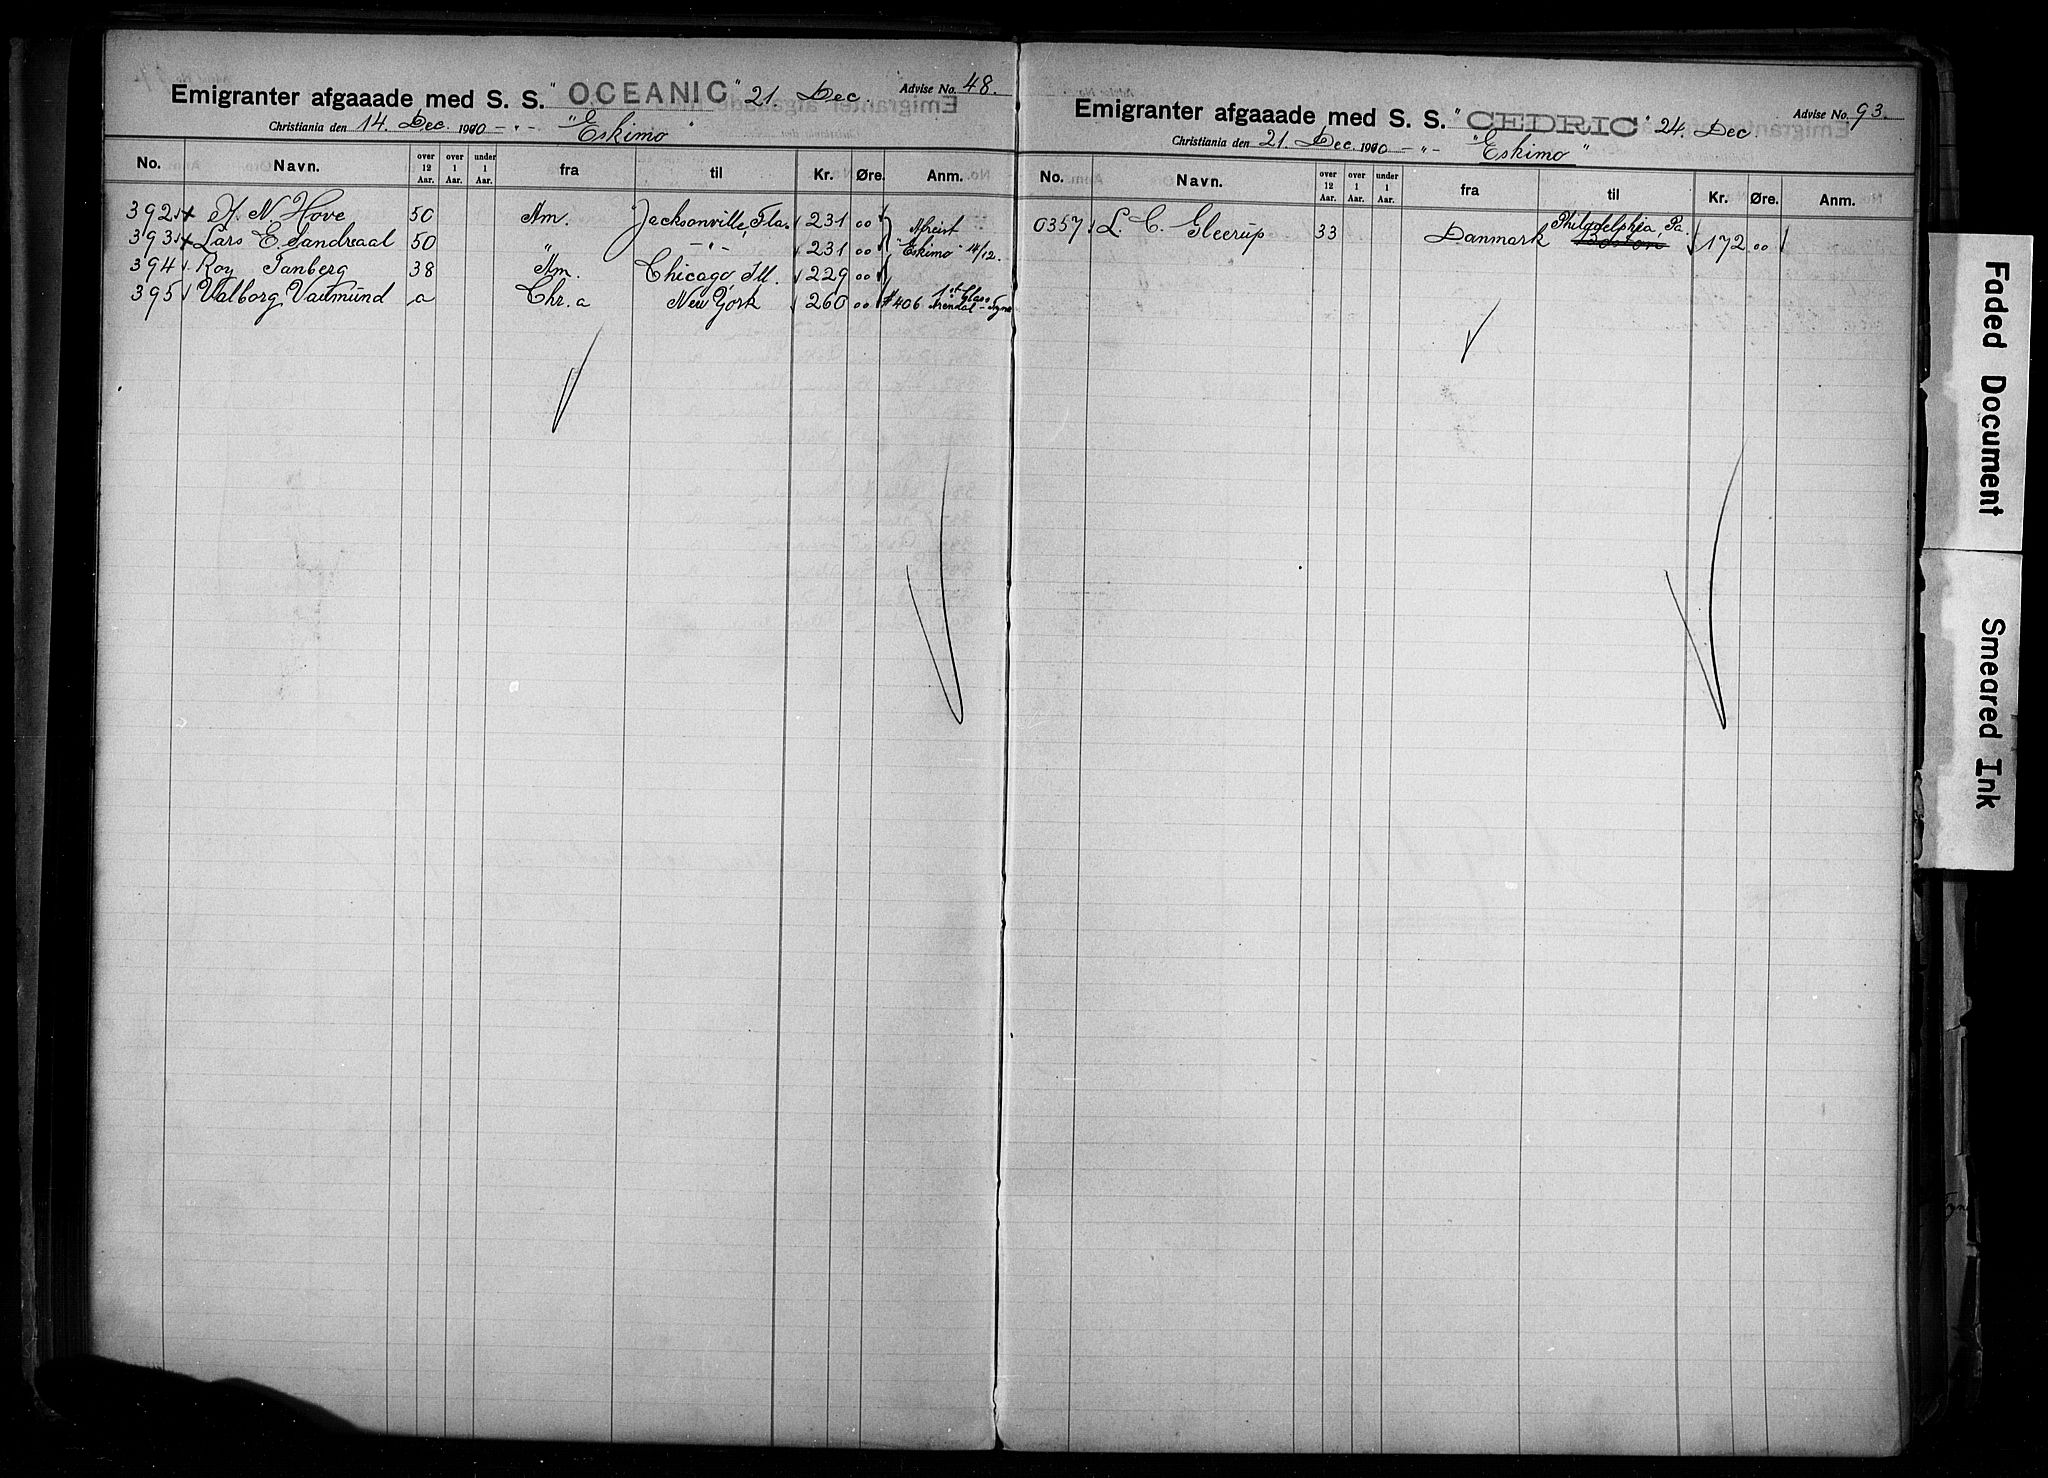 Emigranter afgaaade med S. S. "OCEANIC" 21 Dec Advise No. 48.
Christiania den 14. Dec. 1910 - " - "Eskimo"
No. Navn. over 12 Aar. over 1 Aar. under 1 Aar. fra til Kr. Øre. Anm.
392 N. Hove 50 Am. Jacksonville, Fla. 231 00 Afreist
393 Lars E. Sandraal 50 " - " - 231 00 "Eskimo" 14/12.
394 Roy Tanberg 38 Am. Chicago, Ill. 229 00
395 Valborg a Chr.a New York 260 00 # 406 1st Class Arendal - Tyne
Emigranter afgaaade med S. S. "CEDRIC" 24. Dec Advise No. 93.
Christiania den 21. Dec. 1910 - " - "Eskimo"
No. Navn. over 12 Aar. over 1 Aar. under 1 Aar. fra til Kr. Øre. Anm.
0357 L. C. Gleerup 33 Danmark Philadelphia, Pa. Boston 172 00
Faded Document
Smeared Ink